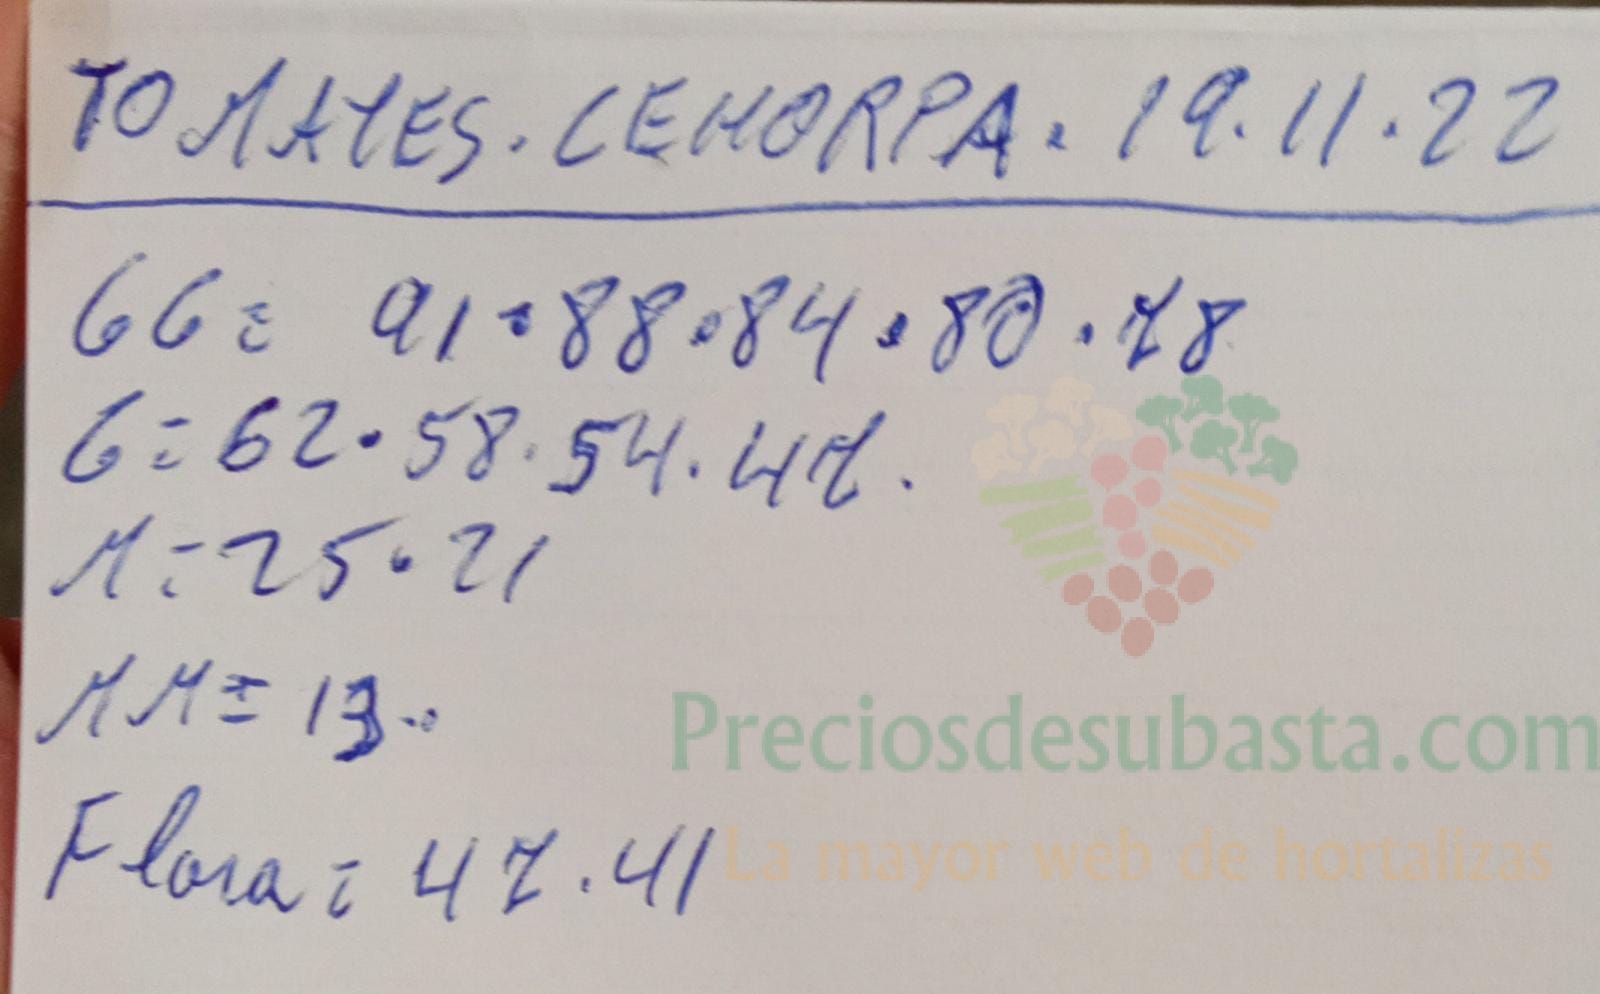 TOMATES. CEHORPA. 19.11.22
GG= 91.88.84.80.78
G=62.58.54.47.
M=25.21
MM=13..
Preciosdesubasta.com
Flora=47.41
La mayor web de hortalizas